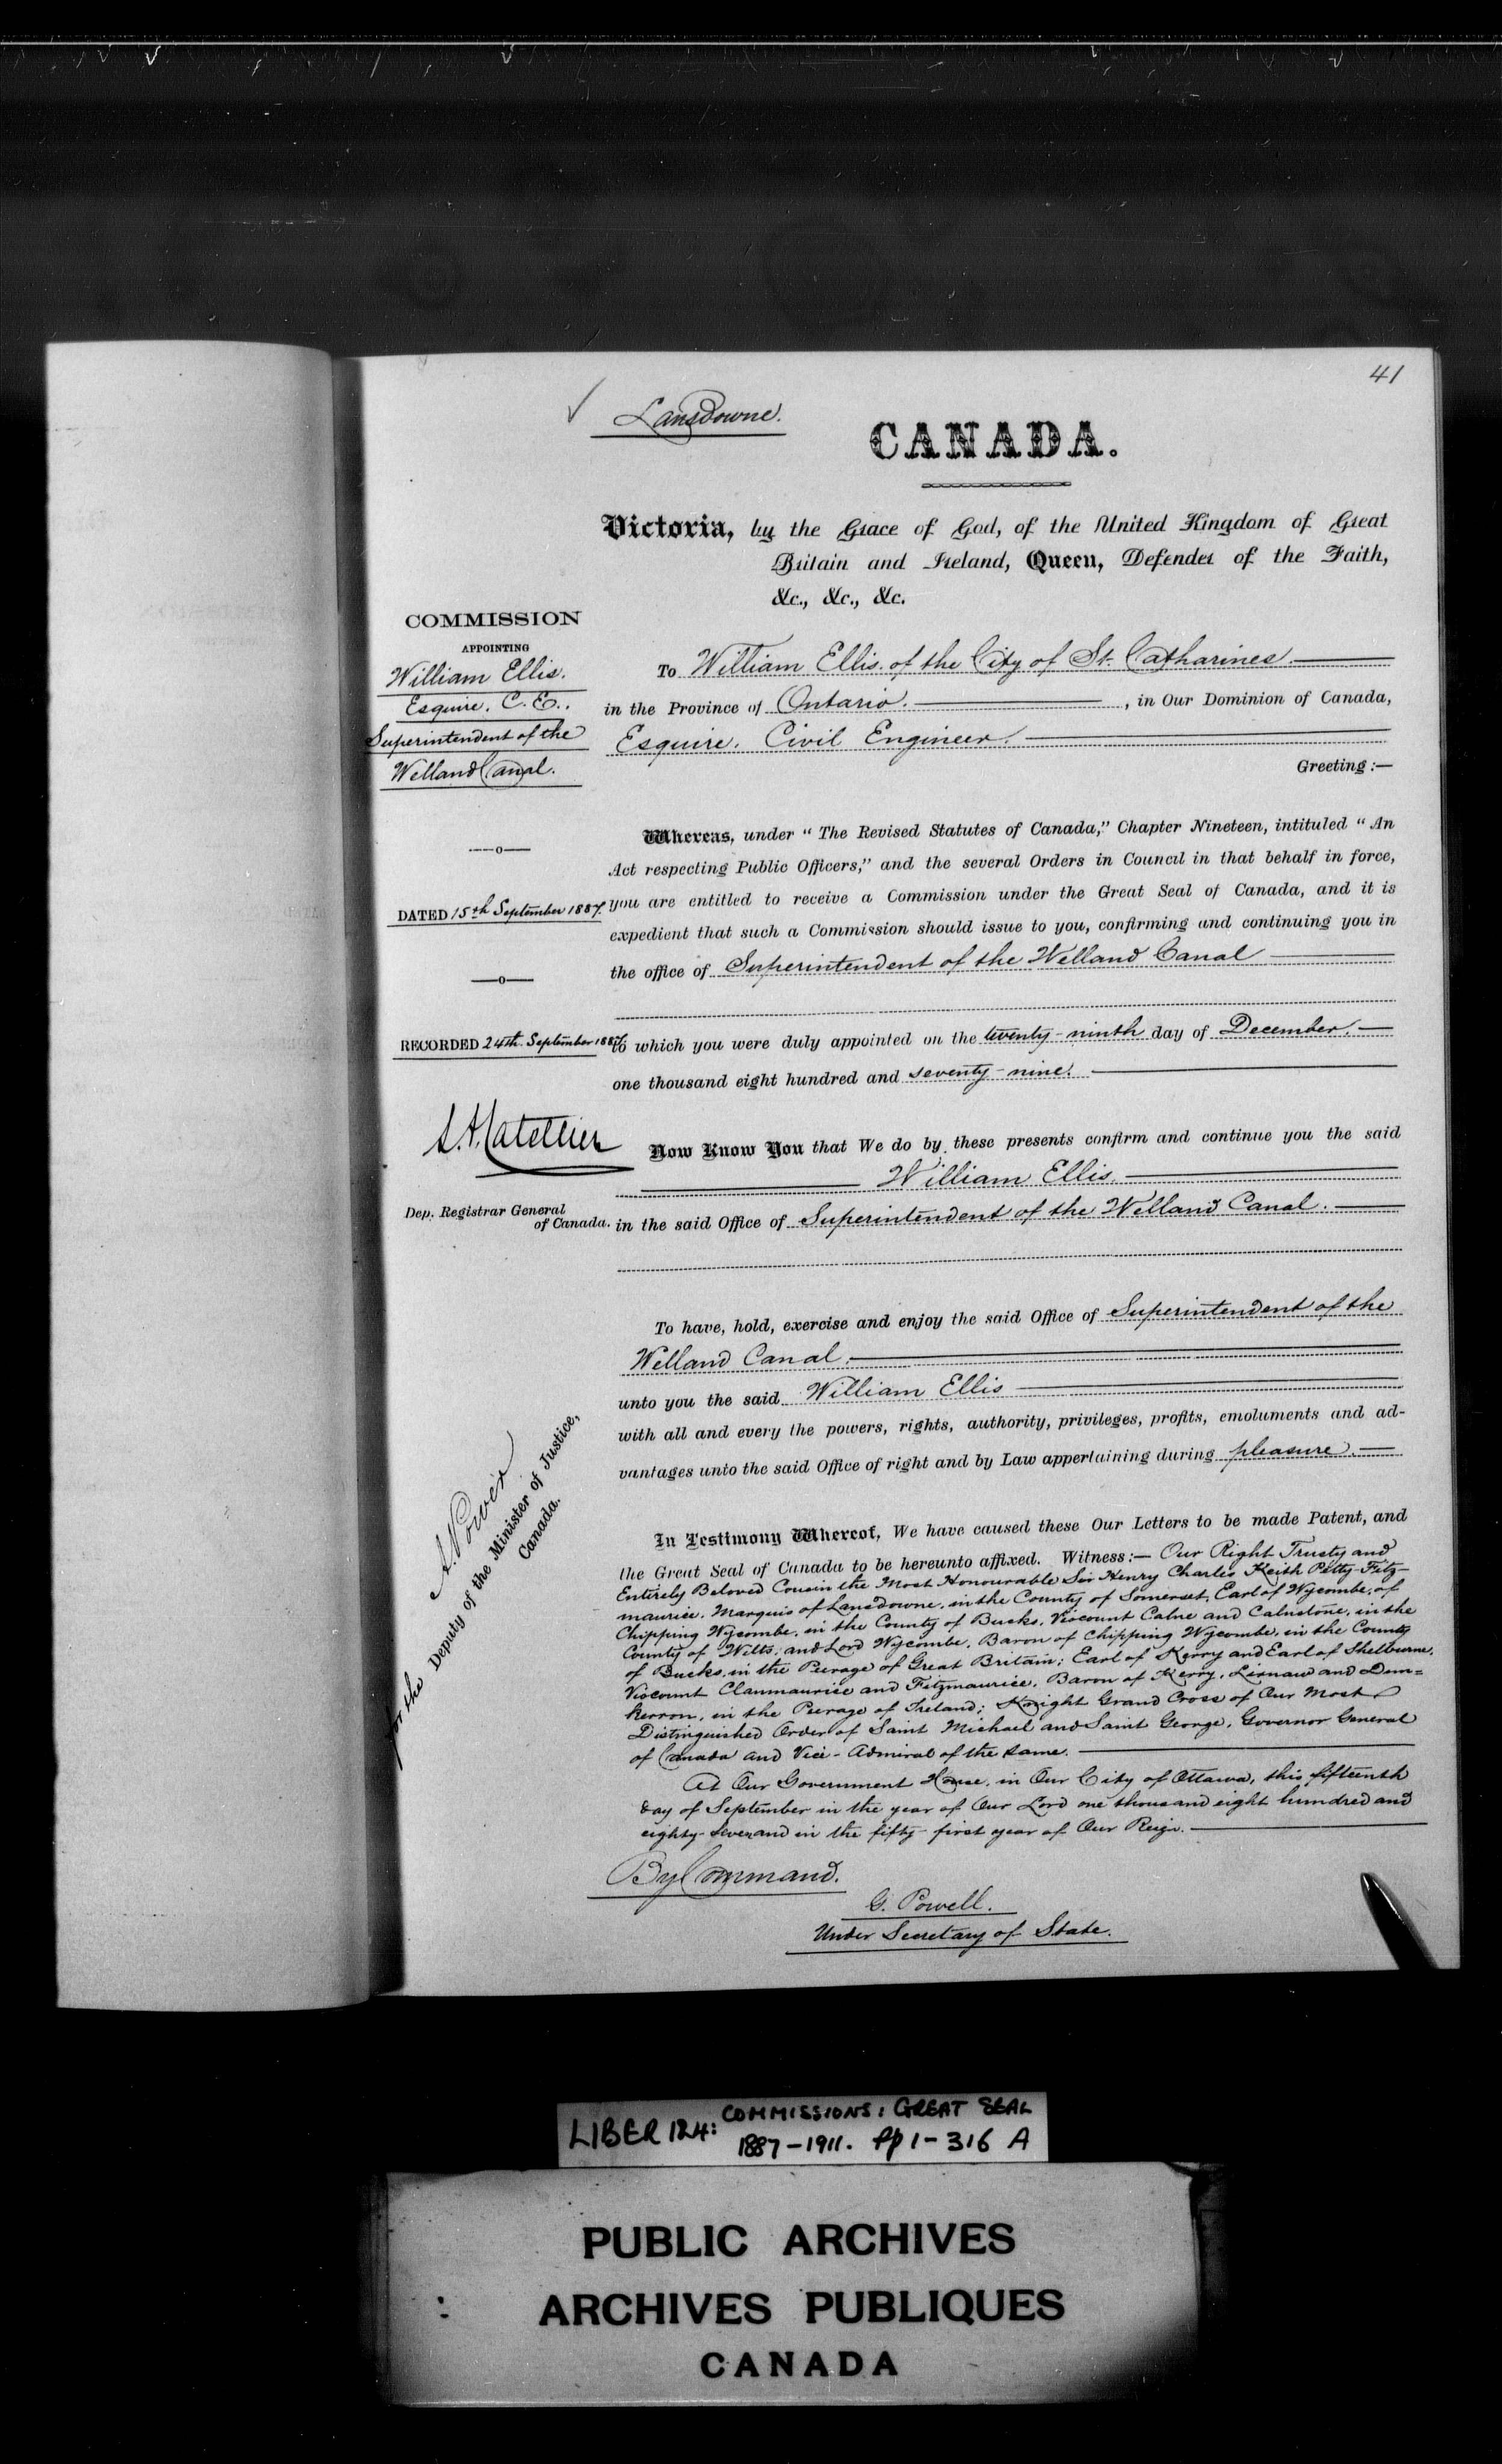 41
Lansdowne.
CANADA.
Victoria, by the Grace of God, of the United Kingdom of Great
Britain and Ireland, Queen, Defender of the Faith,
&c., &c., &c.
COMMISSION
APPOINTING
William Ellis.
Esquire. C.E.,
Superintendent of the
Welland Canal.
To William Ellis. of the City of St. Catharines
in the Province of Ontario. , in Our Dominion of Canada,
Esquire. Civil Engineer.
Greeting:—
Whereas, under "The Revised Statutes of Canada," Chapter Nineteen, intituled "An
Act respecting Public Officers," and the several Orders in Council in that behalf in force,
you are entitled to receive a Commission under the Great Seal of Canada, and it is
expedient that such a Commission should issue to you, confirming and continuing you in
the office of Superintendent of the Welland Canal
—o—
DATED 15th September 1887.
—o—
RECORDED 24th September 1887.
to which you were duly appointed on the twenty-ninth day of December.
one thousand eight hundred and seventy-nine.
Dep. Registrar General
of Canada.
Now Know You that We do by these presents confirm and continue you the said
William Ellis.
in the said Office of Superintendent of the Welland Canal.
To have, hold, exercise and enjoy the said Office of Superintendent of the
Welland Canal.
unto you the said William Ellis
with all and every the powers, rights, authority, privileges, profits, emoluments and ad-
vantages unto the said Office of right and by Law appertaining during pleasure.
A. Power
for the Deputy of the Minister of Justice,
Canada.
In Testimony Whereof, We have caused these Our Letters to be made Patent, and
the Great Seal of Canada to be hereunto affixed. Witness:— Our Right Trusty and
Entirely Beloved Cousin the Most Honourable Sir Henry Charles Keith Petty-Fitz-
maurice. Marquis of Lansdowne, in the County of Somerset, Earl of Wycombe, of
Chipping Wycombe, in the County of Bucks, Viscount Calne and Calnstone, in the
County of Wilts, and Lord Wycombe, Baron of Chipping Wycombe, in the County
of Bucks, in the Peerage of Great Britain; Earl of Kerry and Earl of Shelburne,
Viscount Clanmaurice and Fitzmaurice, Baron of Kerry, Lixnaw and Dun=
kerron, in the Peerage of Ireland; Knight Grand Cross of Our Most
Distinguished Order of Saint Michael and Saint George, Governor General
of Canada and Vice-Admiral of the same.
At Our Government House, in Our City of Ottawa, this fifteenth
day of September in the year of Our Lord one thousand eight hundred and
eighty-seven and in the fifty-first year of Our Reign.
By Command.
G. Powell.
Under Secretary of State.
LIBER 124: COMMISSIONS: GREAT SEAL
1887-1911. pp 1-316 A
PUBLIC ARCHIVES
ARCHIVES PUBLIQUES
CANADA